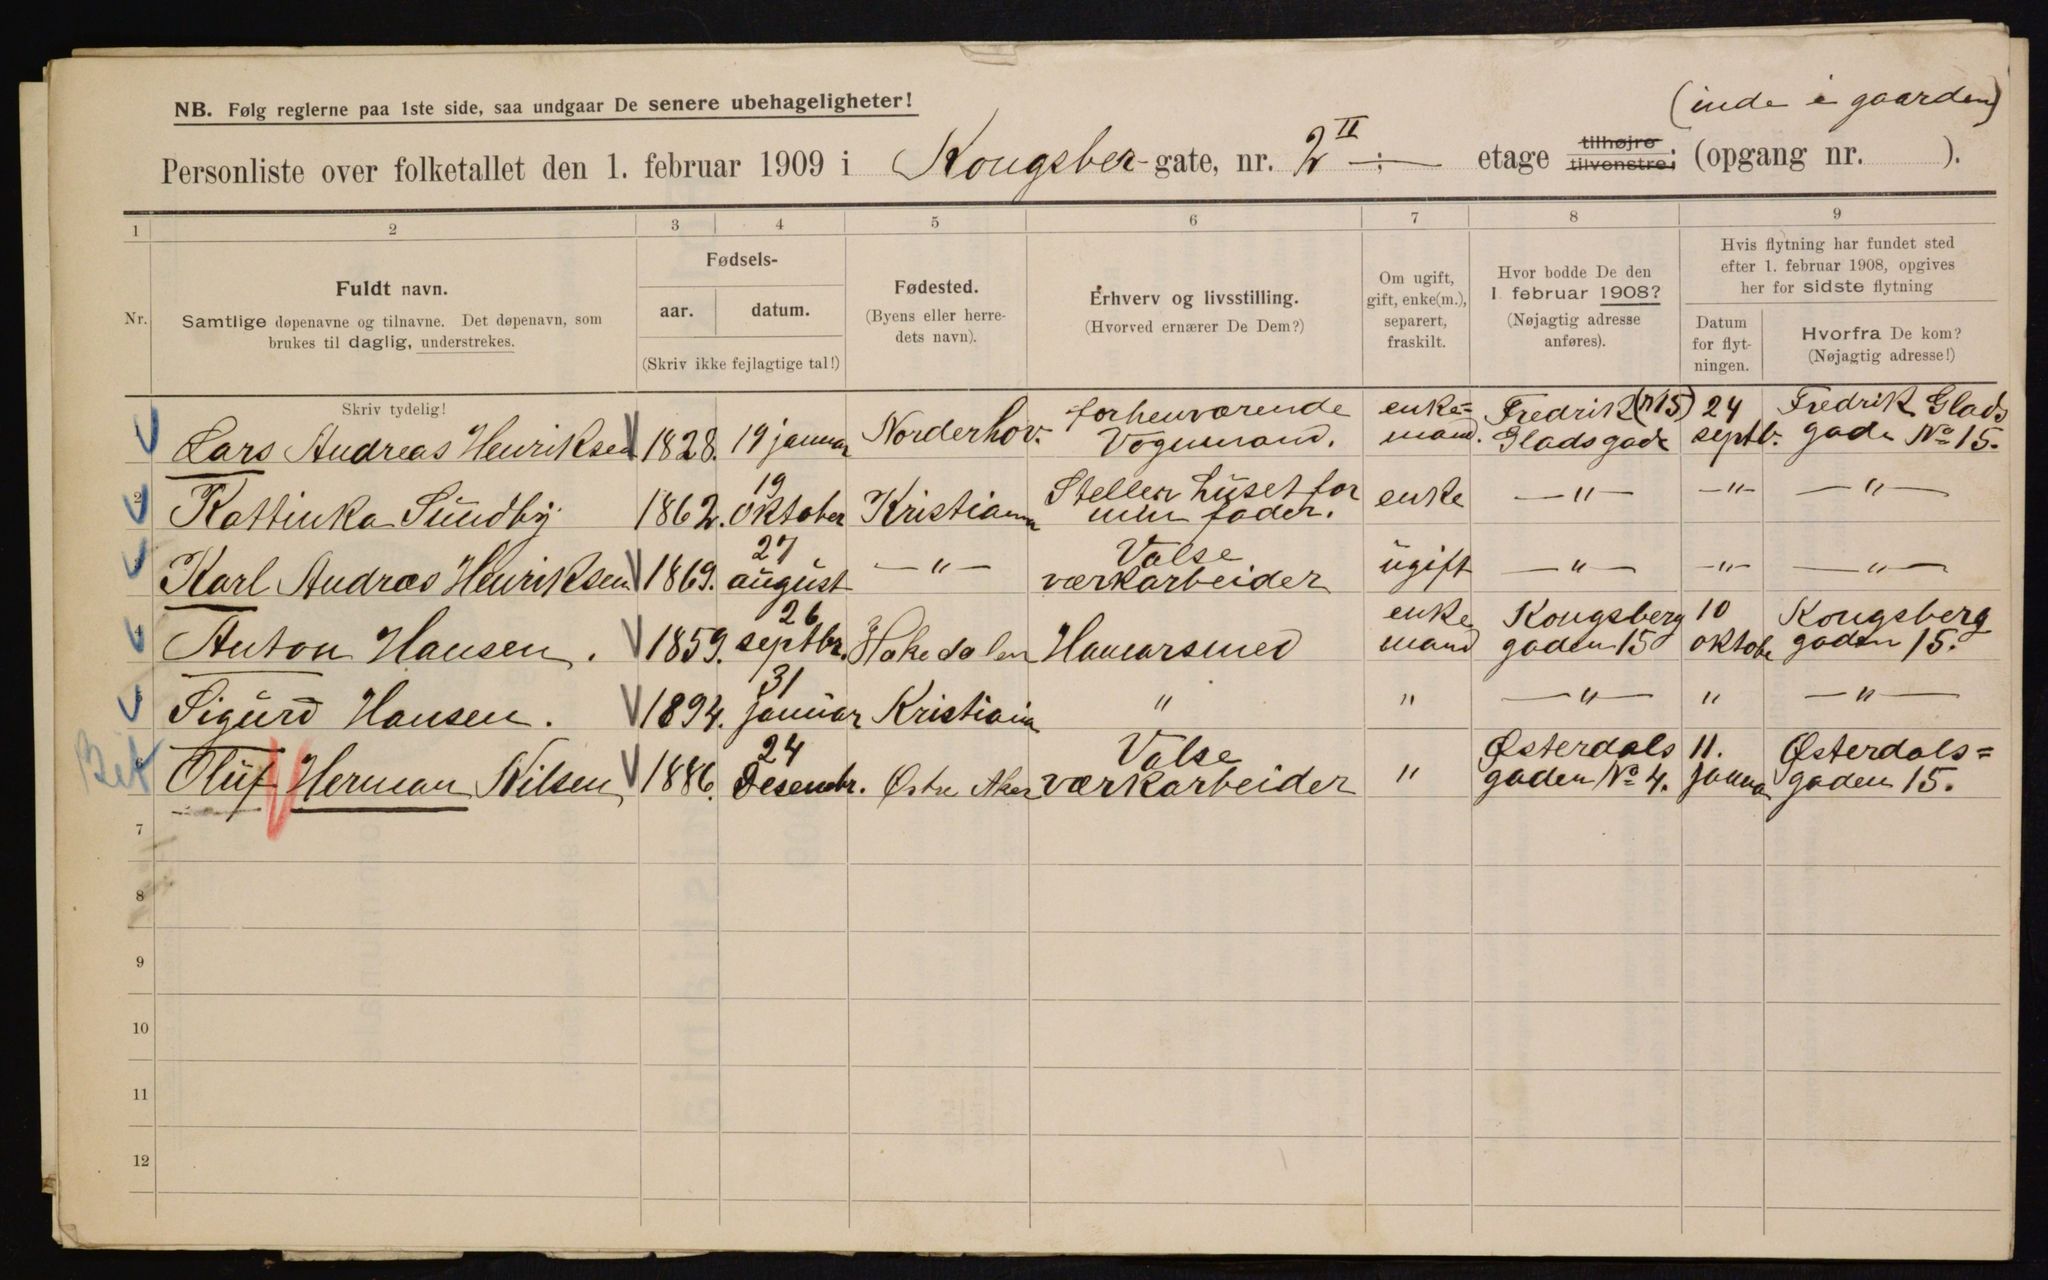 (inde i gaarden)
NB. Følg reglerne paa 1ste side, saa undgaar De senere ubehageligheter!
Personliste over folketallet den 1. februar 1909 i Kongsber-gate, nr. 2 II ÷ etage tilhøjre tilvenstre; (opgang nr. ).
1 2 3 4 5 6 7 8 9
Nr.
Fuldt navn.
Samtlige døpenavne og tilnavne. Det døpenavn, som
brukes til daglig, understrekes.
Skriv tydelig!
Fødsels-
aar. datum.
(Skriv ikke fejlagtige tal!)
Fødested.
(Byens eller herre-
dets navn).
Erhverv og livsstilling.
(Hvorved ernærer De Dem?)
Om ugift,
gift, enke(m.),
separert,
fraskilt.
Hvor bodde De den
1 februar 1908?
(Nøjagtig adresse
anføres).
Hvis flytning har fundet sted
efter 1. februar 1908, opgives
her for sidste flytning
Datum
for flyt-
ningen.
Hvorfra De kom?
(Nøjagtig adresse!)
Lars Andreas Henriksen 1828. 19 januar Norderhov. forhenværende Vognmand. enke= mand. Fredrik (n 15) Gladsgade 24 septb. Fredrik Glads gade No 15.
2 Kattinka Sundby 1862. 19 oktober Kristiania Steller huset for min fader. enke —"— —"— —"—
3 Karl Andras Henriksen 1869. 27 august —"— Valse værkarbeider ugift —"— —"— —"—
4 Anton Hansen. 1859. 26 septbr. Hakedalen Hamarsmed enke mand Kongsberg gaden 15 10 oktobe Kongsberg gaden 15.
5 Sigurd Hansen. 1894. 31 januar Kristiania " " —"— " —"—
6 Oluf Herman Nilsen 1886. 24 Desembr. Østre Aker Valse værkarbeider " Østerdals gaden No 4. 11. januar Østerdals= gaden 15.
7
8
9
10
11
12